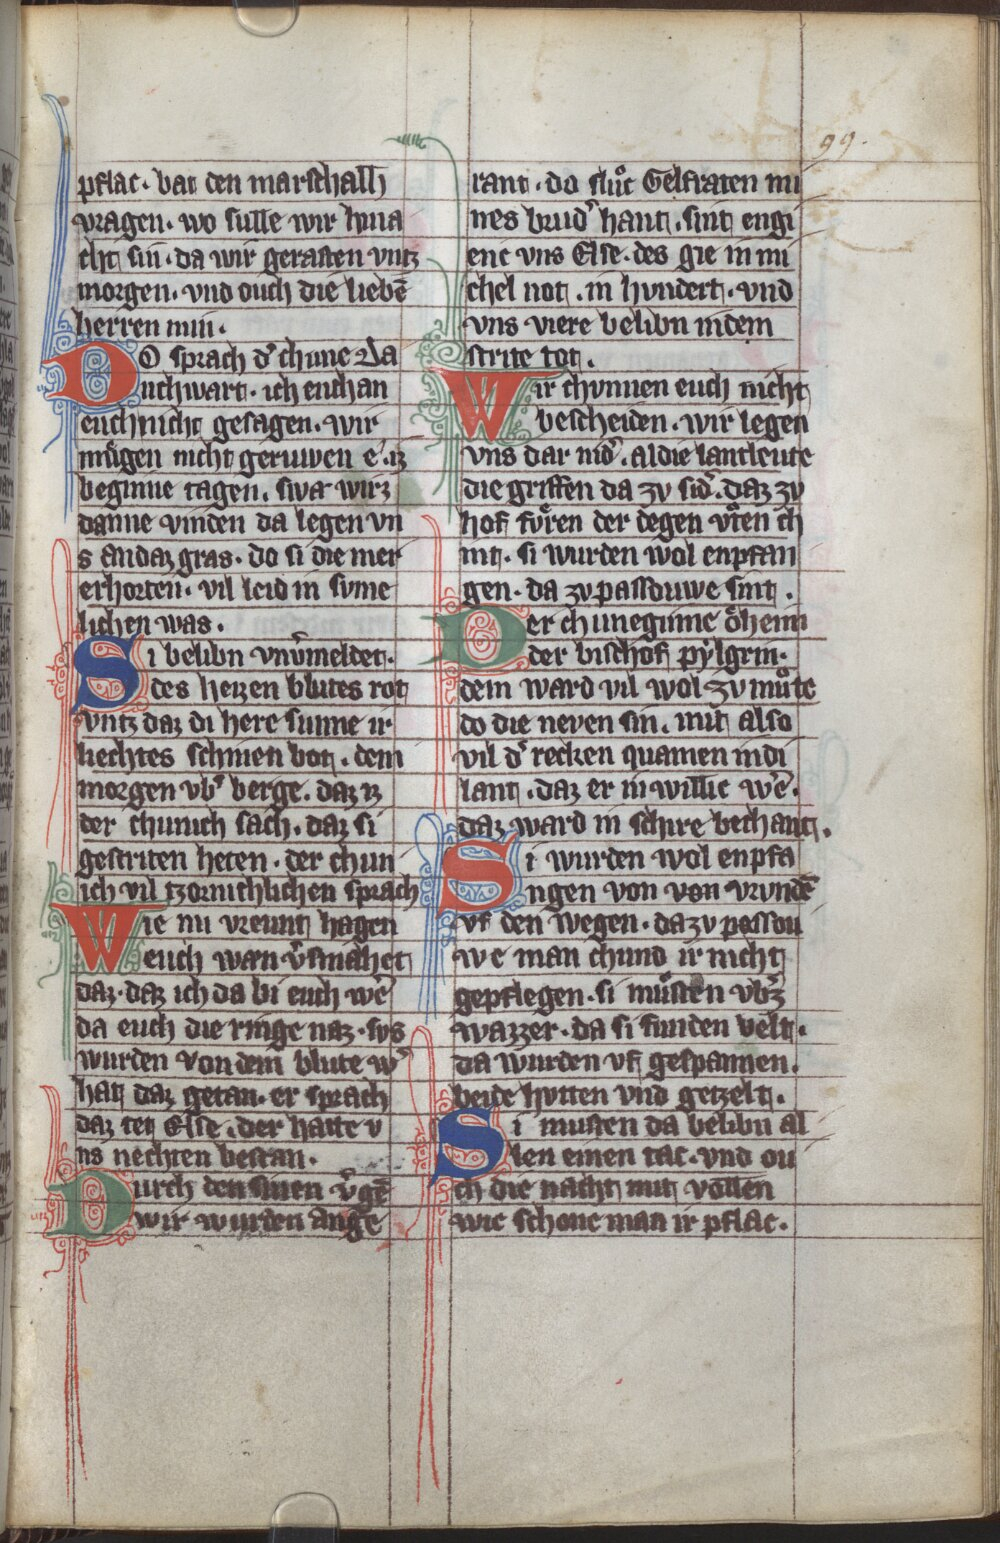 99.
pflac · bat den marschalh
vragen · wo sulle wir hina
cht sin · da wir gerasten vntz
morgen · vnd ouch die liebē
herren min ·
DO sprach dˀ chune Da
nchwart · ich enchan
euch nicht gesagen · wir
mugen nicht geruwen e · iz
beginne tagen · swa wirz
danne vinden da legen vn
s an daz gras · do si die mer
erhorten · vil leid in sume
lichen was ·
Si belibn vnv̄meldet ·
des heizen blutes rot
vntz daz di here sunne ir
liechtes schinen bot · dem
morgen vbˀ berge · daz iz
der chunich sach · daz si
gestriten heten · der chun
ich vil tzornichlichen sprach
Wie nu vreunt hagen
euch wan v̄smahet
daz · daz ich da bi euch wē
da euch die ringe naz · sus
wurden von dem blute wˀ
hat daz getan · er sprach
daz tet Else · der hatte v
ns nechten bestan ·
Durch den sinen v̄gē
wir wurden ange
rant · do sluͦc Gelfraten mi
nes brudˀ hant · sint engi
enc vns Else · des gie in mi
chel not · in hvndert · vnd
vns viere belibn in dem
strite tot ·
Wir chvnnen euch nicht
bescheiden · wir legen
vns dar nidˀ · al die lantleute
die griften da zv sidˀ · daz zv
hof furen der degen vͦten ch
int · si wurden wol enpfan
gen · da zv passouwe sint ·
Der chuneginne oheim
der bischof pylgrin ·
dem ward vil wol zv muͦte
do die neven sin · mit also
vil dˀ recken quamen in di
lant · daz er in willic wē ·
daz ward in schire bechant ·
Si wurden wol enpfa
ngen von von vrvndē
vf den wegen · da zv passou
we man chund ir nicht
gepflegen · si musten vbˀz
wazzer · da si funden velt ·
da wurden vf gespannen ·
beide hvtten vnd getzelt ·
Si musten da belibn al
len einen tac · vnd ou
ch die nacht mit vollen
wie schone man ir pflac ·